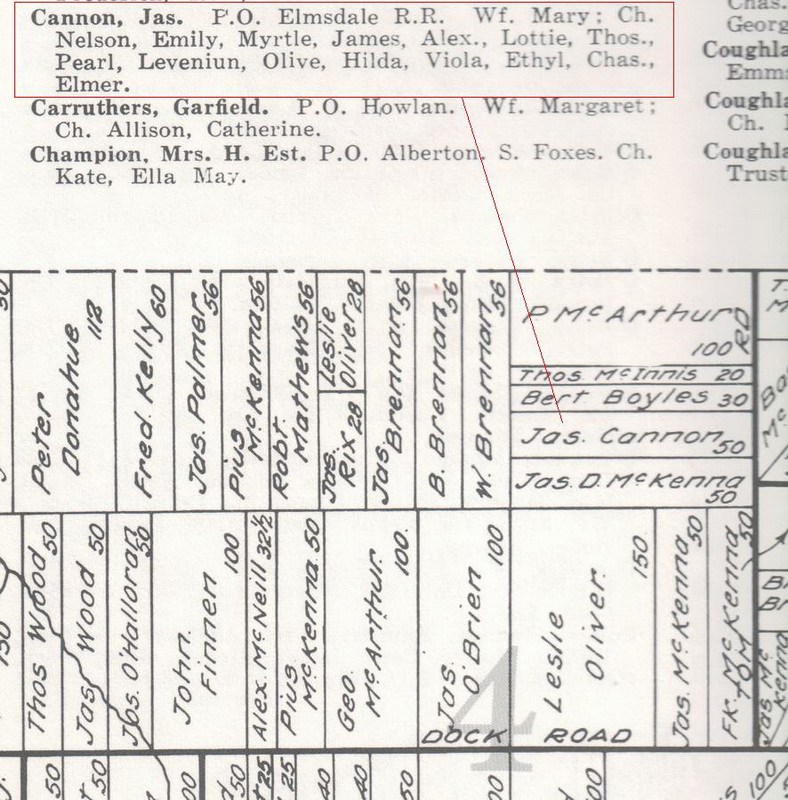 Cannon, Jas. P.O. Elmsdale R.R. Wf. Mary; Ch.
Nelson, Emily, Myrtle, James, Alex., Lottie, Thos.,
Pearl, Leveniun, Olive, Hilda, Viola, Ethyl, Chas.,
Elmer.
Carruthers, Garfield. P.O. Howlan. Wf. Margaret;
Ch. Allison, Catherine.
Champion, Mrs. H. Est. P.O. Alberton. S. Foxes. Ch.
Kate, Ella May.
Chas.
Georg
Coughla
Emm
Coughla
Ch.
Coughla
Trust
Peter
Donahue 112
Fred. Kelly 60
Jas. Palmer 56
Pius
McKenna 56
Robt.
Mathews 56
Leslie
Oliver 28
Jas.
Rix 28
Jas
Brennan 56
B. Brennan 56
W. Brennan 56
P McArthur
100
RD
Thos McInnis 20
Bert Boyles 30
Jas. Cannon 50
Jas. D. McKenna
50
Thos Wood 50
Jas Wood 50
Jos. O'Halloran
50
John
Finnen 100
Alex. McNeill 32½
Pius
McKenna 50
Geo.
McArthur 100
Jas.
O'Brien 100
Leslie
Oliver 150
Jas. McKenna 50
Fk. McKenna 50
TOM
Jas Mc
Kenna
150
4
DOCK ROAD
50
50
00
50
25
25
40
40
50
00
00
100